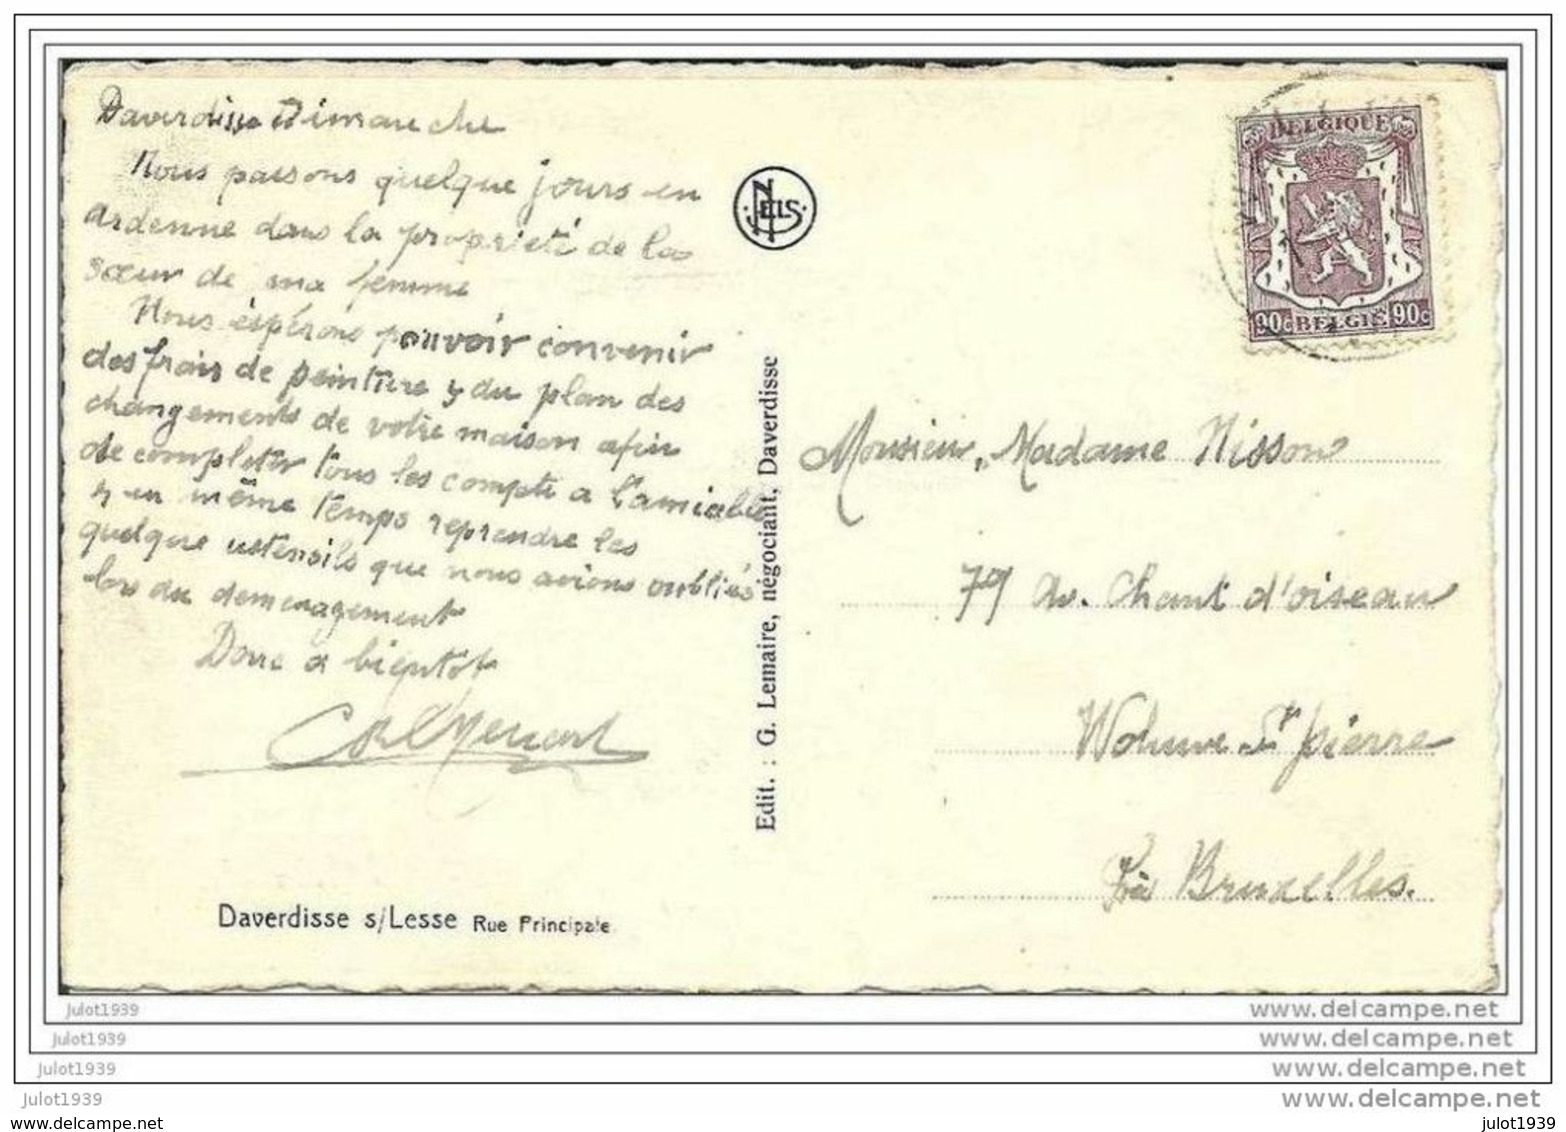 Daverdisse Dimanche
Nous passons quelque jours en
ardenne dans la proprieté de la
sœur de ma femme
Nous èspérons pouvoir convenir
des frais de peinture & du plan des
changements de votre maison afin
de completer tous les compte a l'amiable
& en même temps reprendre les
quelque ustensils que nous avions oubliés
lors du demenagement
Donc a bientot
Daverdisse s/Lesse Rue Principale
NELS
Edit. : G. Lemaire, négociant, Daverdisse
BELGIQUE
90c BELGIË 90c
Monsieur, Madame Nisson
79 Av. Chant d'oiseau
Woluwe St pierre
Près Bruxelles.
julot1939 www.delcampe.net
julot1939 www.delcampe.net
julot1939 www.delcampe.net
julot1939 www.delcampe.net
www.delcampe.net julot1939